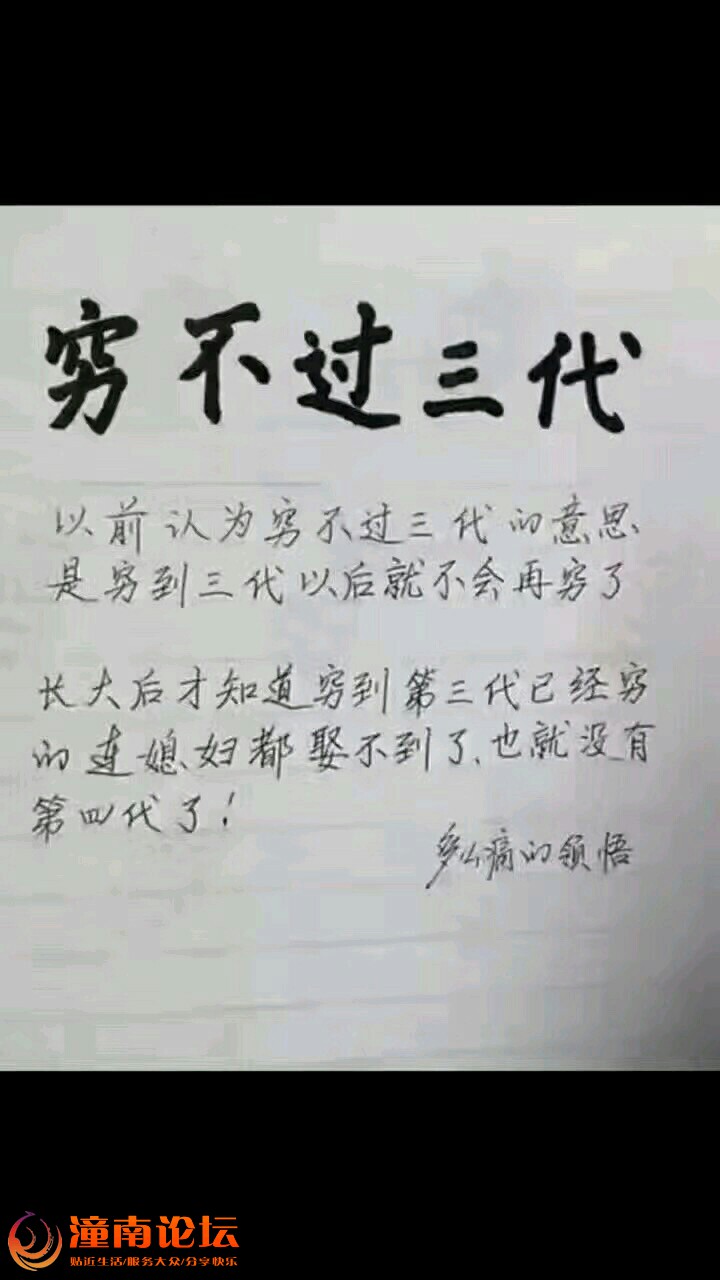 穷不过三代
以前认为穷不过三代的意思
是穷到三代以后就不会再穷了
长大后才知道穷到第三代已经穷
的连媳妇都娶不到了、也就没有
第四代了！
多么痛的领悟
潼南论坛
贴近生活/服务大众/分享快乐